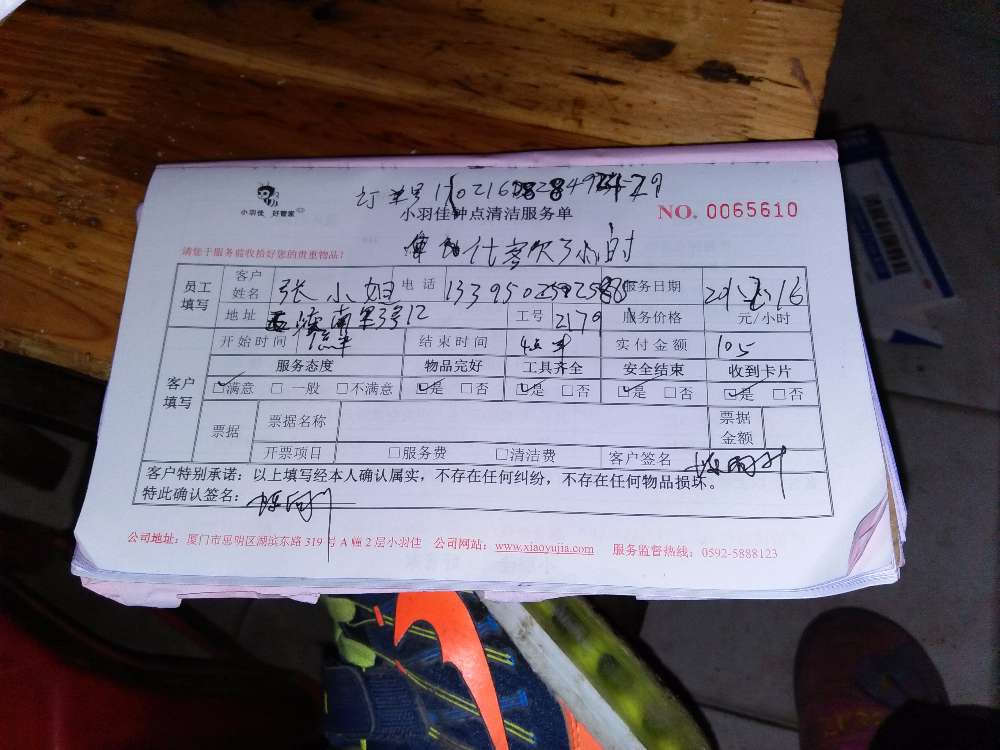 小羽佳 好管家
订单号
小羽佳钟点清洁服务单
NO. 0065610
请您于服务监收拾好您的贵重物品!
员工填写 客户姓名 张小姐 电话 服务日期
地址 工号 2179 服务价格 元/小时
客户填写 开始时间 结束时间 实付金额 105
服务态度 物品完好 工具齐全 安全结束 收到卡片
☑满意 □一般 □不满意 ☑是 □否 ☑是 □否 ☑是 □否 ☑是 □否
票据 票据名称 票据金额
开票项目 □服务费 □清洁费 客户签名
客户特别承诺:以上填写经本人确认属实,不存在任何纠纷,不存在任何物品损坏。
特此确认签名:
公司地址:厦门市思明区湖滨东路 319 号 A 幢 2 层小羽佳 公司网站:www.xiaoyujia.com 服务监督热线:0592-5888123